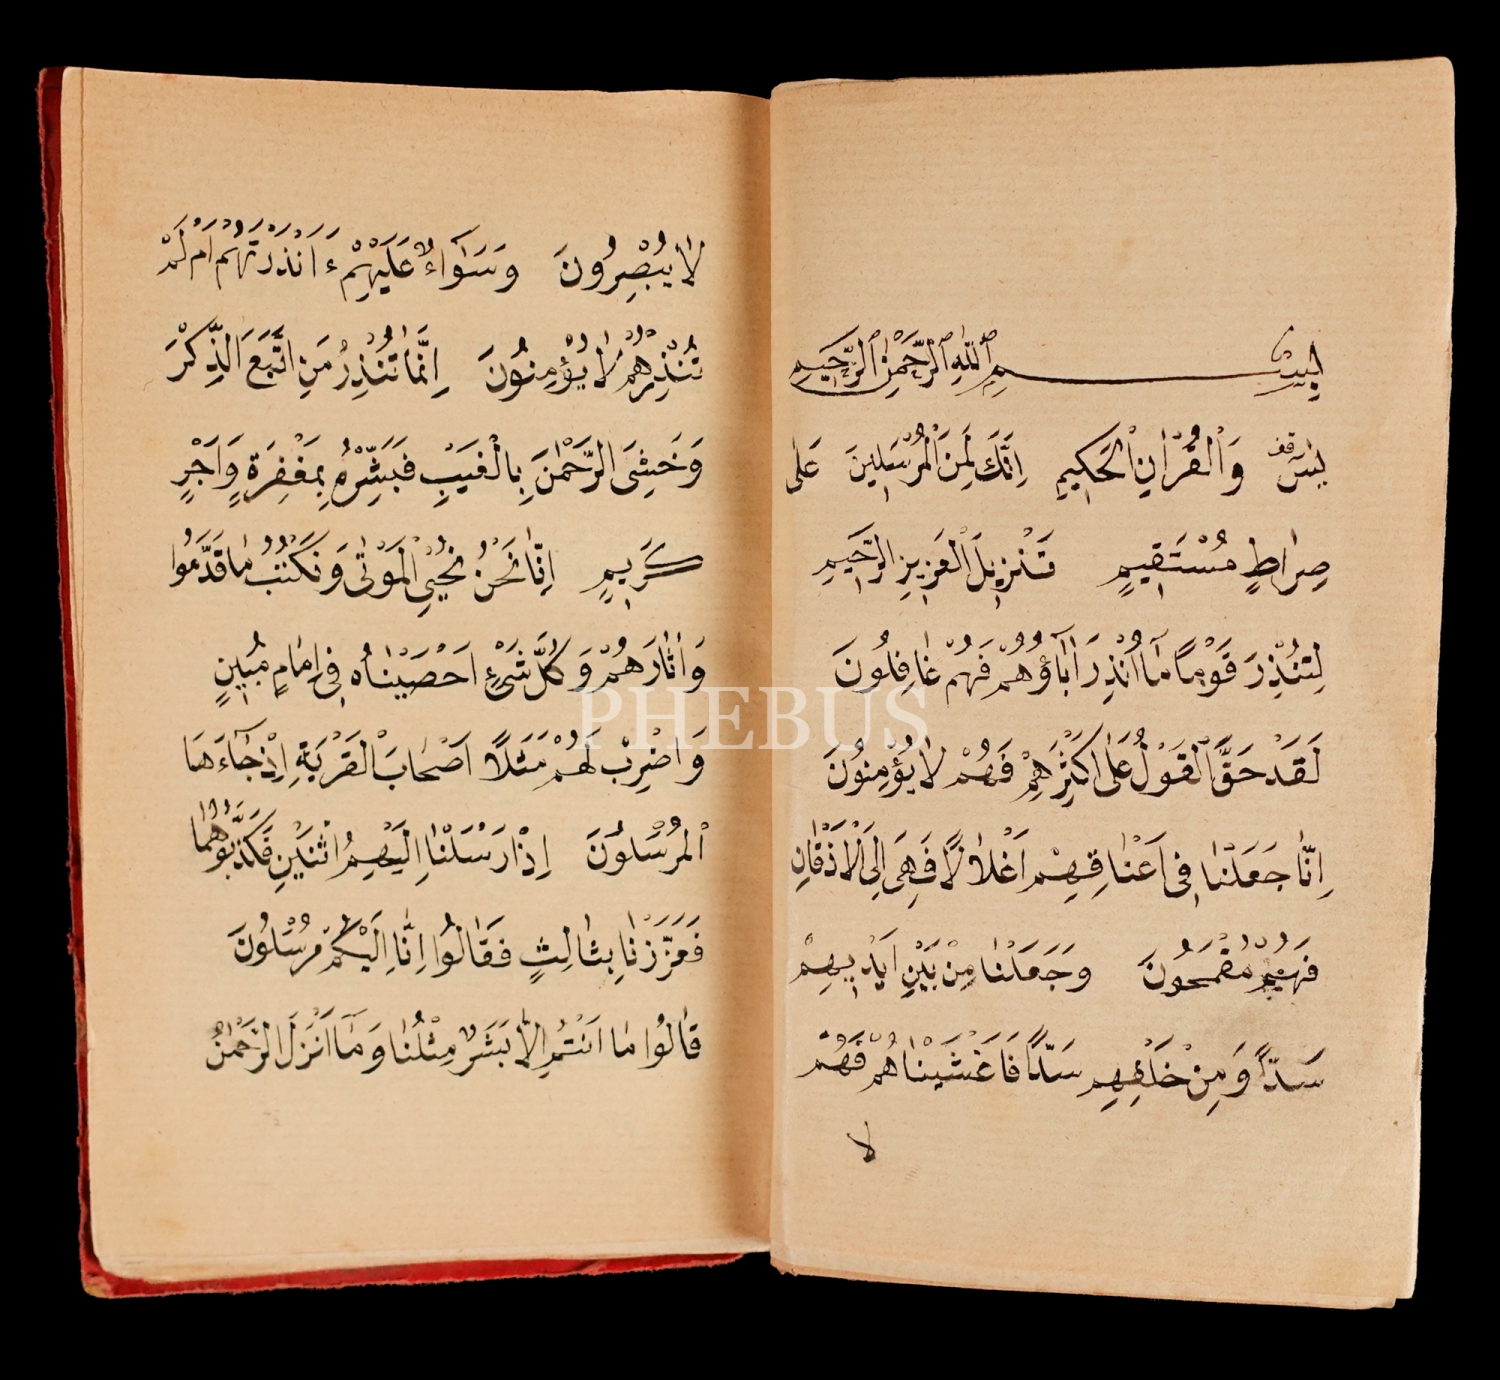 بِسْمِ اللّٰهِ الرَّحْمٰنِ الرَّحِيمِ
يٰسٓ قف وَالْقُرْاٰنِ الْحَكِيمِ اِنَّكَ لَمِنَ الْمُرْسَلِينَ عَلٰى
صِرَاطٍ مُسْتَقِيمٍ تَنْزِيلَ الْعَزِيزِ الرَّحِيمِ
لِتُنْذِرَ قَوْمًا مَٓا اُنْذِرَ اٰبَٓاؤُ۬هُمْ فَهُمْ غَافِلُونَ
لَقَدْ حَقَّ الْقَوْلُ عَلٰٓى اَكْثَرِهِمْ فَهُمْ لَا يُؤْمِنُونَ
اِنَّا جَعَلْنَا فِٓى اَعْنَاقِهِمْ اَغْلَالًا فَهِىَ اِلَى الْاَذْقَانِ
فَهُمْ مُقْمَحُونَ وَجَعَلْنَا مِنْ بَيْنِ اَيْدِيهِمْ
سَدًّا وَمِنْ خَلْفِهِمْ سَدًّا فَاَغْشَيْنَاهُمْ فَهُمْ
لا
لَا يُبْصِرُونَ وَسَوَٓاءٌ عَلَيْهِمْ ءَاَنْذَرْتَهُمْ اَمْ لَمْ
تُنْذِرْهُمْ لَا يُؤْمِنُونَ اِنَّمَا تُنْذِرُ مَنِ اتَّبَعَ الذِّكْرَ
وَخَشِىَ الرَّحْمٰنَ بِالْغَيْبِ فَبَشِّرْهُ بِمَغْفِرَةٍ وَاَجْرٍ
كَرِيمٍ اِنَّا نَحْنُ نُحْيِى الْمَوْتٰى وَنَكْتُبُ مَا قَدَّمُوا
وَاٰثَارَهُمْ وَكُلَّ شَىْءٍ اَحْصَيْنَاهُ فِٓى اِمَامٍ مُبِينٍ
وَاضْرِبْ لَهُمْ مَثَلًا اَصْحَابَ الْقَرْيَةِ اِذْ جَٓاءَهَا
الْمُرْسَلُونَ اِذْ اَرْسَلْنَٓا اِلَيْهِمُ اثْنَيْنِ فَكَذَّبُوهُمَا
فَعَزَّزْنَا بِثَالِثٍ فَقَالُٓوا اِنَّٓا اِلَيْكُمْ مُرْسَلُونَ
قَالُوا مَٓا اَنْتُمْ اِلَّا بَشَرٌ مِثْلُنَا وَمَٓا اَنْزَلَ الرَّحْمٰنُ
PHEBUS